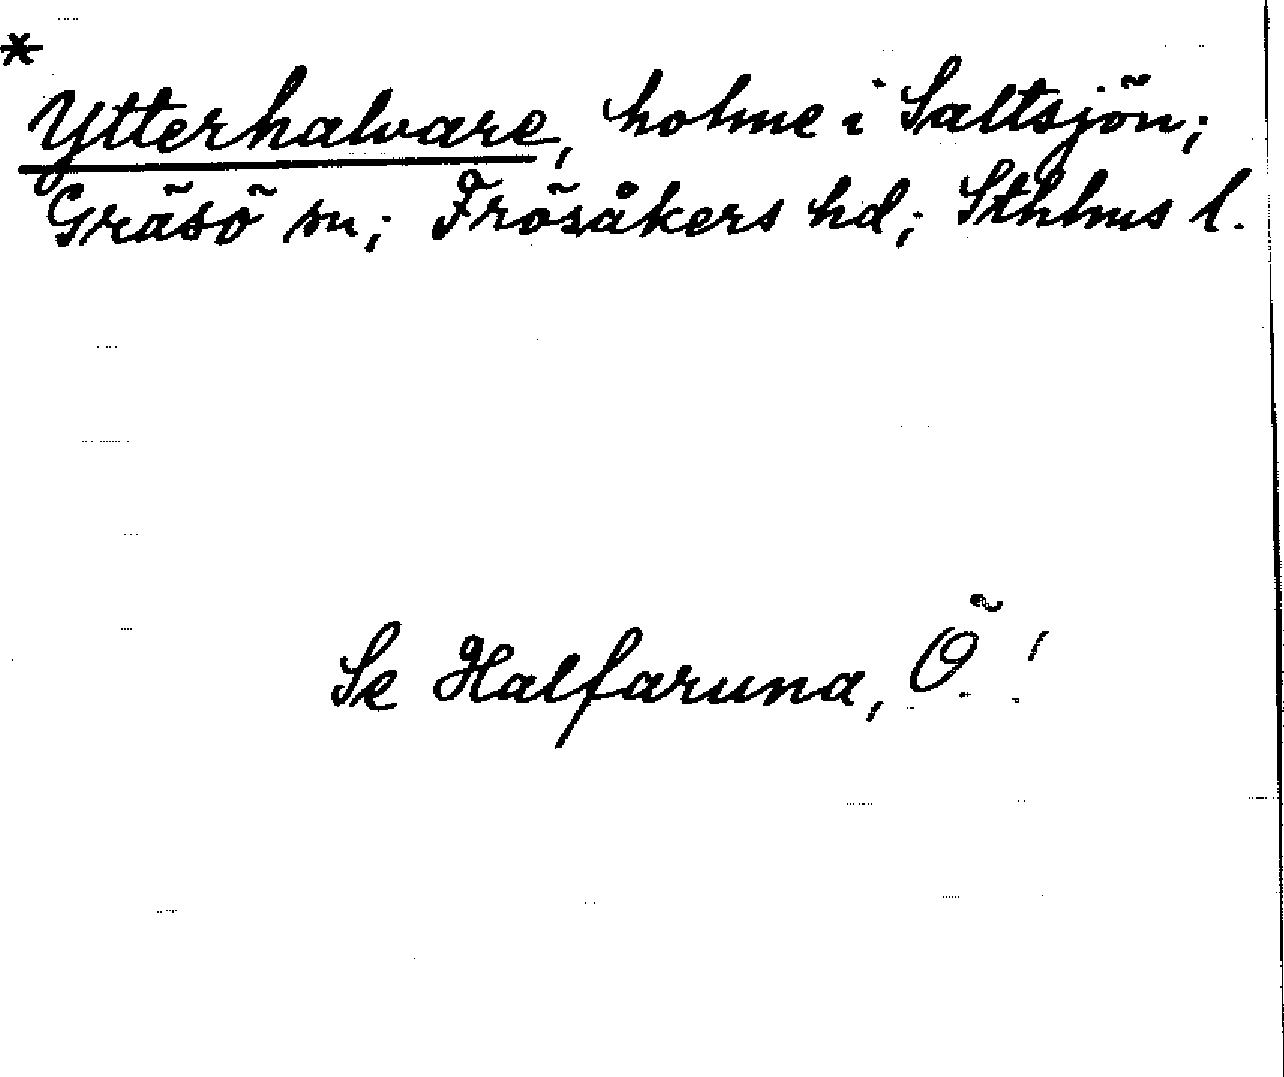 *
Ytterhalvare, holme i Saltsjön;
Gräsö sn; Frösåkers hd; Sthlms l.
Se Halfaruna, Ö!